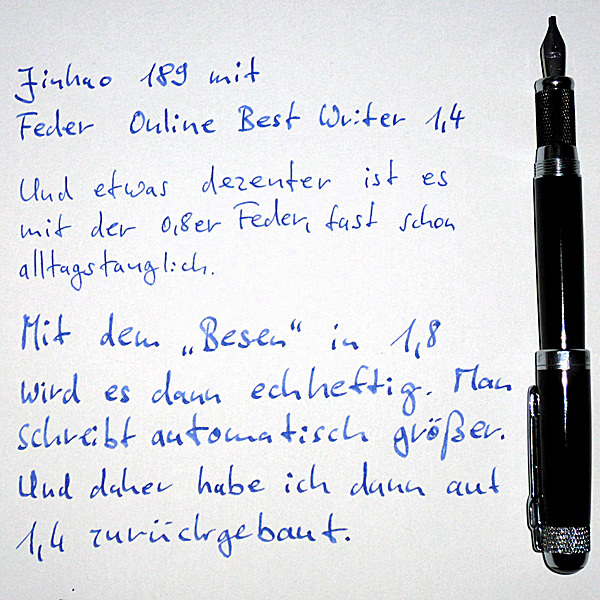 Jinhao 189 mit
Feder Online Best Writer 1,4
Und etwas dezenter ist es
mit der 0,8er Feder, fast schon
alltagstauglich.
Mit dem „Besen“ in 1,8
wird es dann echheftig. Man
schreibt automatisch größer.
Und daher habe ich dann auf
1,4 zurückgebaut.